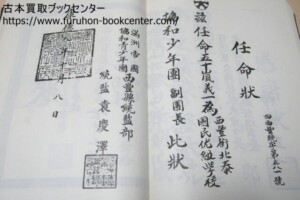 古本買取ブックセンター
http://www.furuhon-bookcenter.com/
任命狀
茲任命五十嵐義一為西豐街北泰
國民優級學校
協和少年團副團長此狀
月八日
滿洲帝國
協和青少年團西豐縣統監部
統監袁慶澤